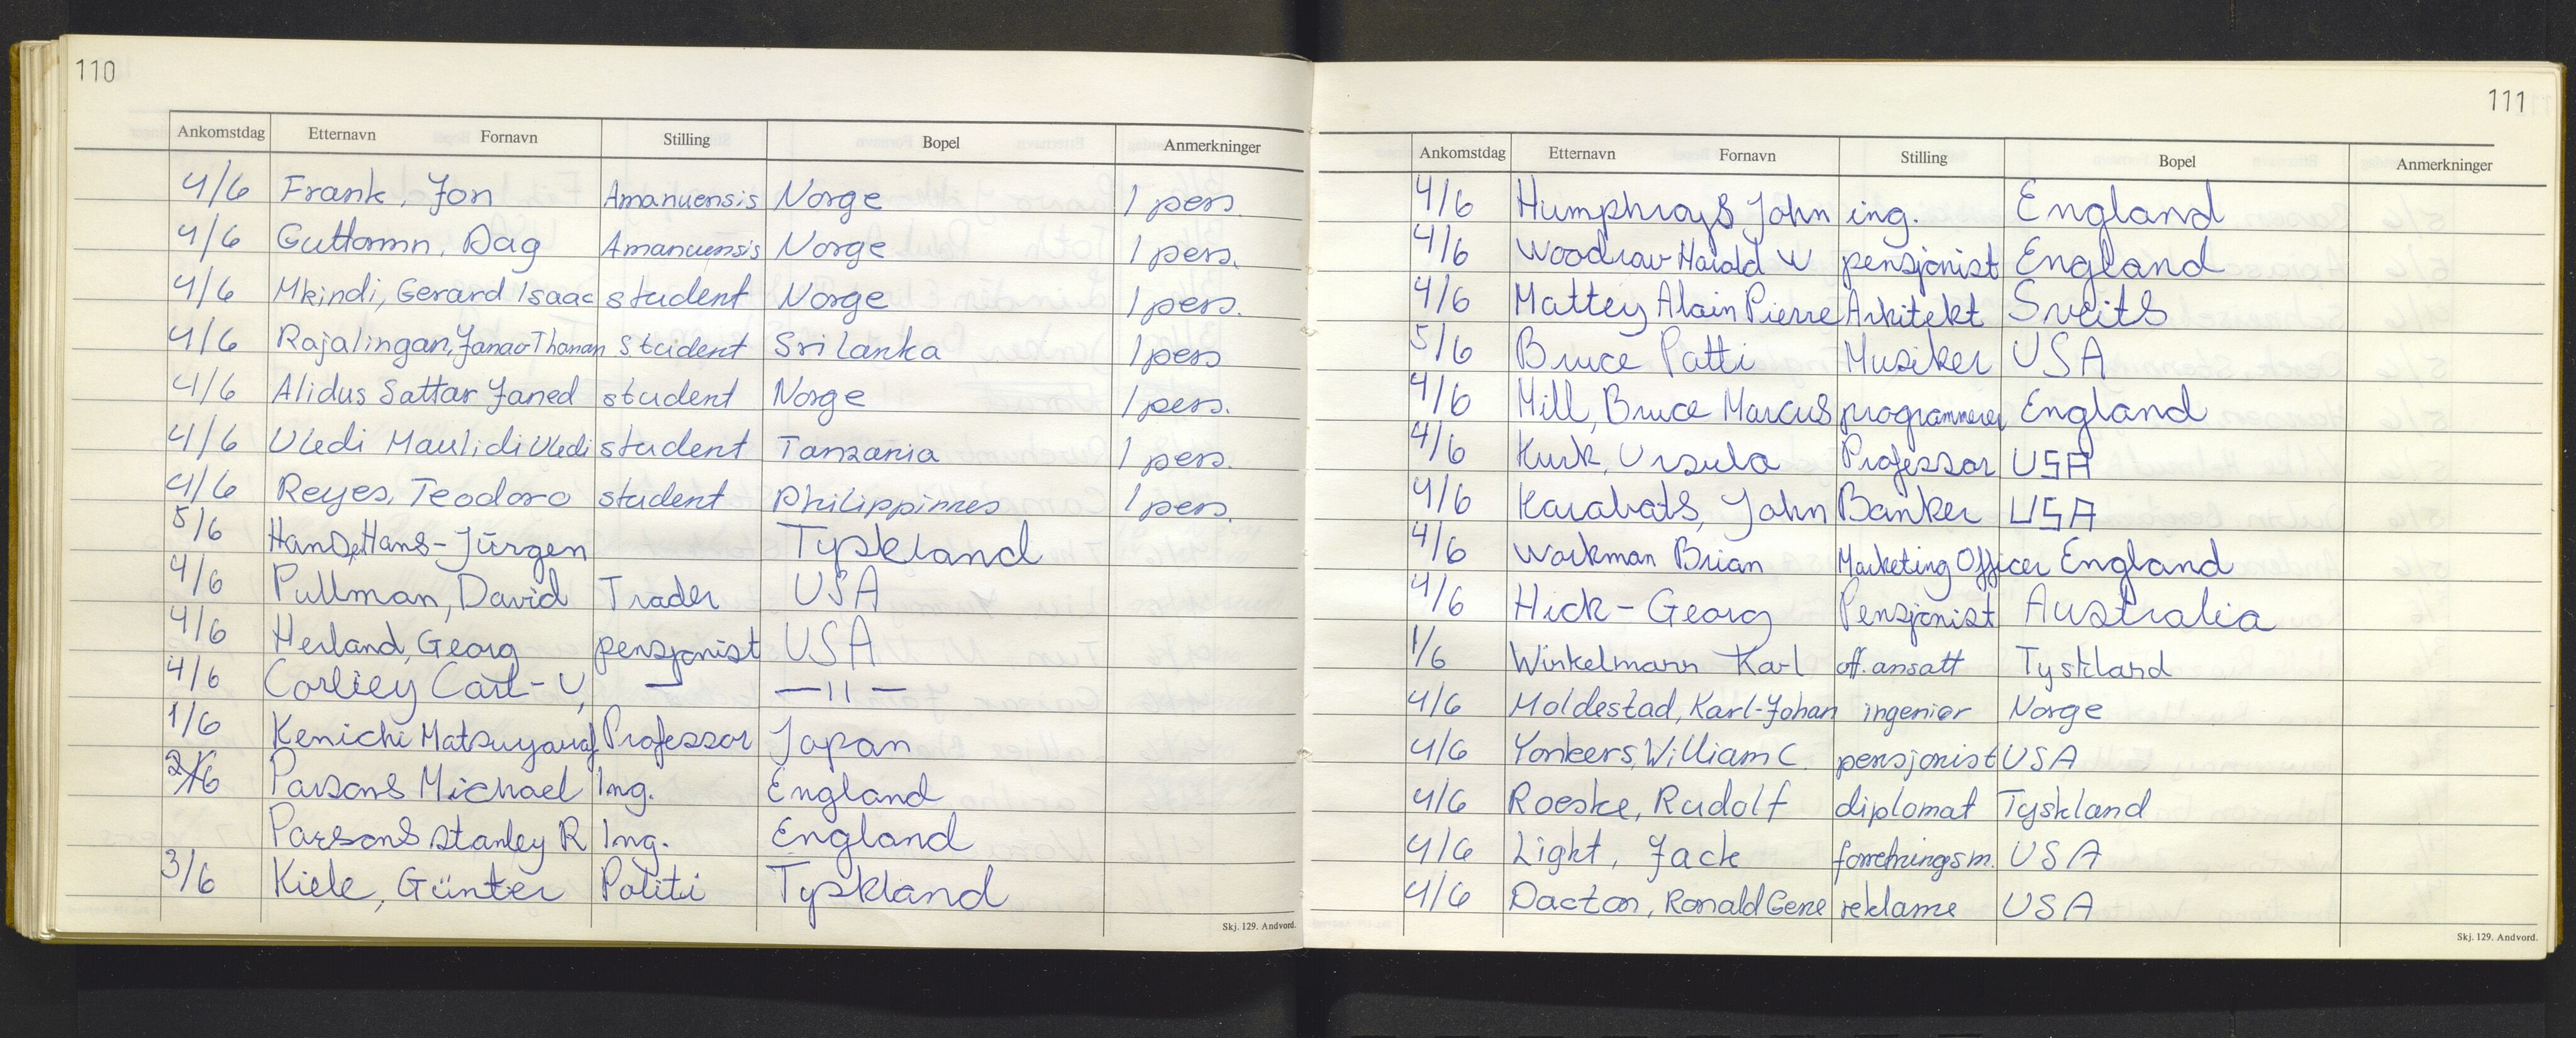 110
Ankomstdag Etternavn Fornavn Stilling Bopel Anmerkninger
4/6 Frank, Jon Amanuensis Norge 1 pers.
4/6 Guttormn, Dag Amanuensis Norge 1 pers.
4/6 Mkindi, Gerard Isaac student Norge 1 pers.
4/6 Rajalingan, student Sri Lanka 1 pers
4/6 Alidus Sattar Janed student Norge 1 pers.
4/6 Uledi Maulidi Uledi student Tanzania 1 pers.
4/6 Reyes, Teodoro student Philippines 1 pers.
5/6 Hans-Jürgen Tyskland
4/6 Pullman, David Trader USA
4/6 Herland, Georg pensjonist USA
4/6 Corliey Carl-U, — —11—
1/6 Kenichi Professor Japan
Parsons Michael Ing. England
Parsons Stanley R Ing. England
3/6 Kiele, Günter Politi Tyskland
Skj. 129. Andvord.
111
Ankomstdag Etternavn Fornavn Stilling Bopel Anmerkninger
4/6 Humphroys John ing. England
4/6 Woodrow Harold W pensjonist England
4/6 Mattey Alain Pierre Arkitekt Sveits
5/6 Bruce Patti Musiker USA
4/6 Mill, Bruce Marcus programmerer England
4/6 Kurk, Ursula Professor USA
4/6 Karabats, John Banker USA
4/6 Workman Brian Marketing Officer England
4/6 Hick-Georg Pensjonist Australia
1/6 Winkelmann Karl off. ansatt Tyskland
4/6 Moldestad, Karl-Johan ingeniør Norge
4/6 Yonkers, William C. pensjonist USA
4/6 Roeske, Rudolf diplomat Tyskland
4/6 Light, Jack forretningsm. USA
4/6 Dacton, Ronald Gene reklame USA
Skj. 129. Andvord.